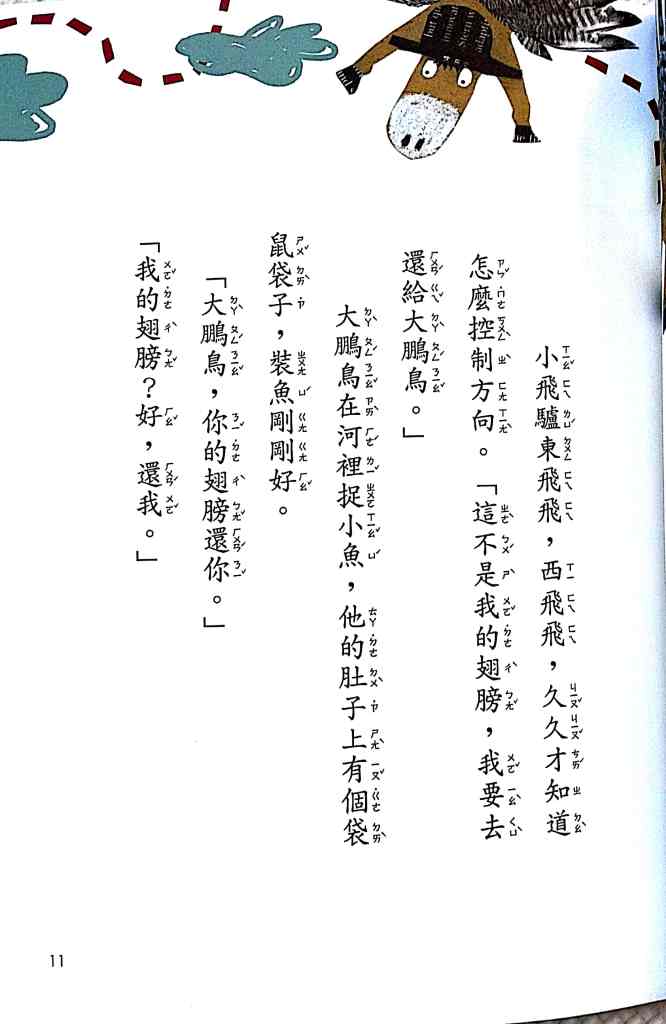 小飛驢東飛飛，西飛飛，久久才知道
怎麼控制方向。「這不是我的翅膀，我要去
還給大鵬鳥。」
大鵬鳥在河裡捉小魚，他的肚子上有個袋
鼠袋子，裝魚剛剛好。
「大鵬鳥，你的翅膀還你。」
「我的翅膀？好，還我。」
11